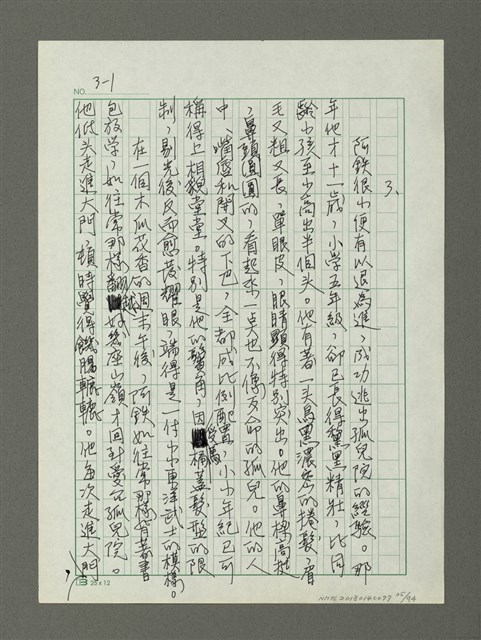 NO. 3-1
3、
阿鉄很小便有以退為進，成功逃出孤兒院的經驗。那
年他才十一歲，小学五年級，卻已長得黧黑精壯，比同
齡小孩至少高出半個头。他有着一头烏黑濃密的捲髮，眉
毛又粗又長，單眼皮，眼睛顯得特別突出。他的鼻樑高挺
，鼻頭圓圓的，看起來一点也不像歹命的孤兒。他的人
中、嘴唇和開叉的下巴，全都成比例配置，小小年紀已可
稱得上相貌堂堂。特別是他的鬢角，因受馬桶蓋髮型的限
制，易光後反而愈發耀眼，端得是一付小小東洋武士的模樣。
在一個木瓜花香的周末午後，阿鉄如往常那樣背着書
包放学，如往常那樣翻越好幾座山嶺才回到愛心孤兒院。
他低头走進大門，頓時覺得饑腸轆轆。他每次走進大門
，
25x12
NMTL20180140077 05/94